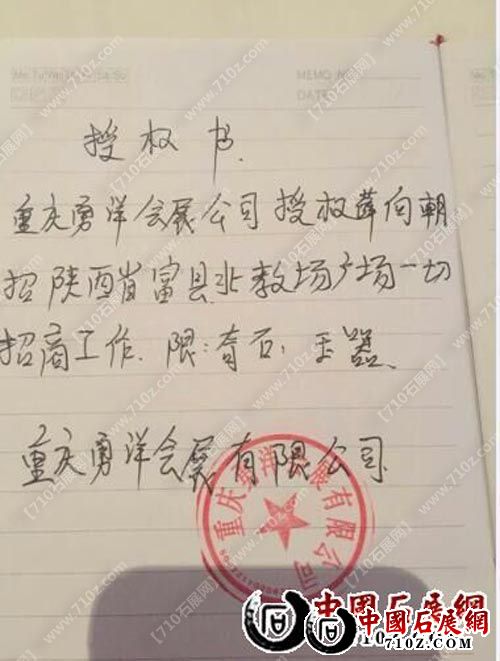 Mo Tu We Th Fr Sa Su
MEMO NO.
DATE
授权书.
重庆勇洋会展公司授权薛向朝
招陕西省富县北教场广场一切
招商工作. 限:奇石; 玉器.
重庆勇洋会展有限公司.
重庆勇洋会展有限公司
【710石展网】www.710z.com
中國石展網
www.710z.com